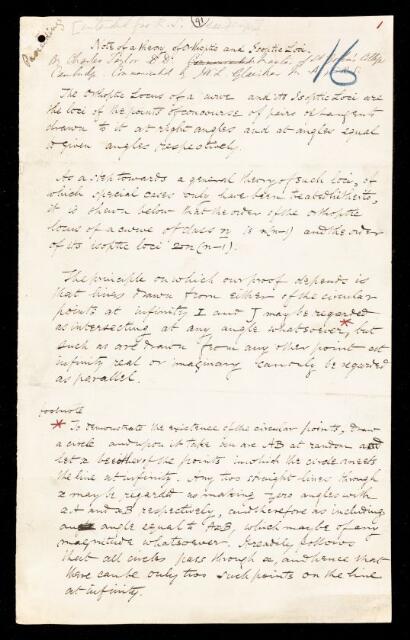 [intended for R.S.
91
1
Note of a Theory of Orthoptic and Isoptic Loci.
By Charles Taylor D.D. Master of St John's College
Cambridge. Communicated by J.W.L. Glaisher M.A. F.R.S.
16
The Orthoptic Locus of a curve and its Isoptic Loci are
the loci of the points of concourse of pairs of tangents
drawn to it at right angles and at angles equal
to given angles respectively.
As a step towards a general theory of such loci, of
which special cases only have been treated hitherto,
it is shewn below that the order of the orthoptic
locus of a curve of class n is n(n-1) and the order
of its isoptic loci 2n(n-1).
The principle on which our proof depends is
that lines drawn from either of the circular
points at infinity I and J may be regarded
as intersecting at any angle whatsoever,* but
such as are drawn from any other point at
infinity real or imaginary can only be regarded
as parallel.
footnote
* To demonstrate the existence of the circular points, draw
a circle and upon it take an arc AB at random and
let x be either of the points in which the circle meets
the line at infinity. Any two straight lines through
x may be regarded as making zero angles with
xA and xB respectively, and therefore as including
angle equal to AxB, which may be of any
magnitude whatsoever. It readily follows
that all circles pass through x, and hence that
there can be only two such points on the line
at infinity.